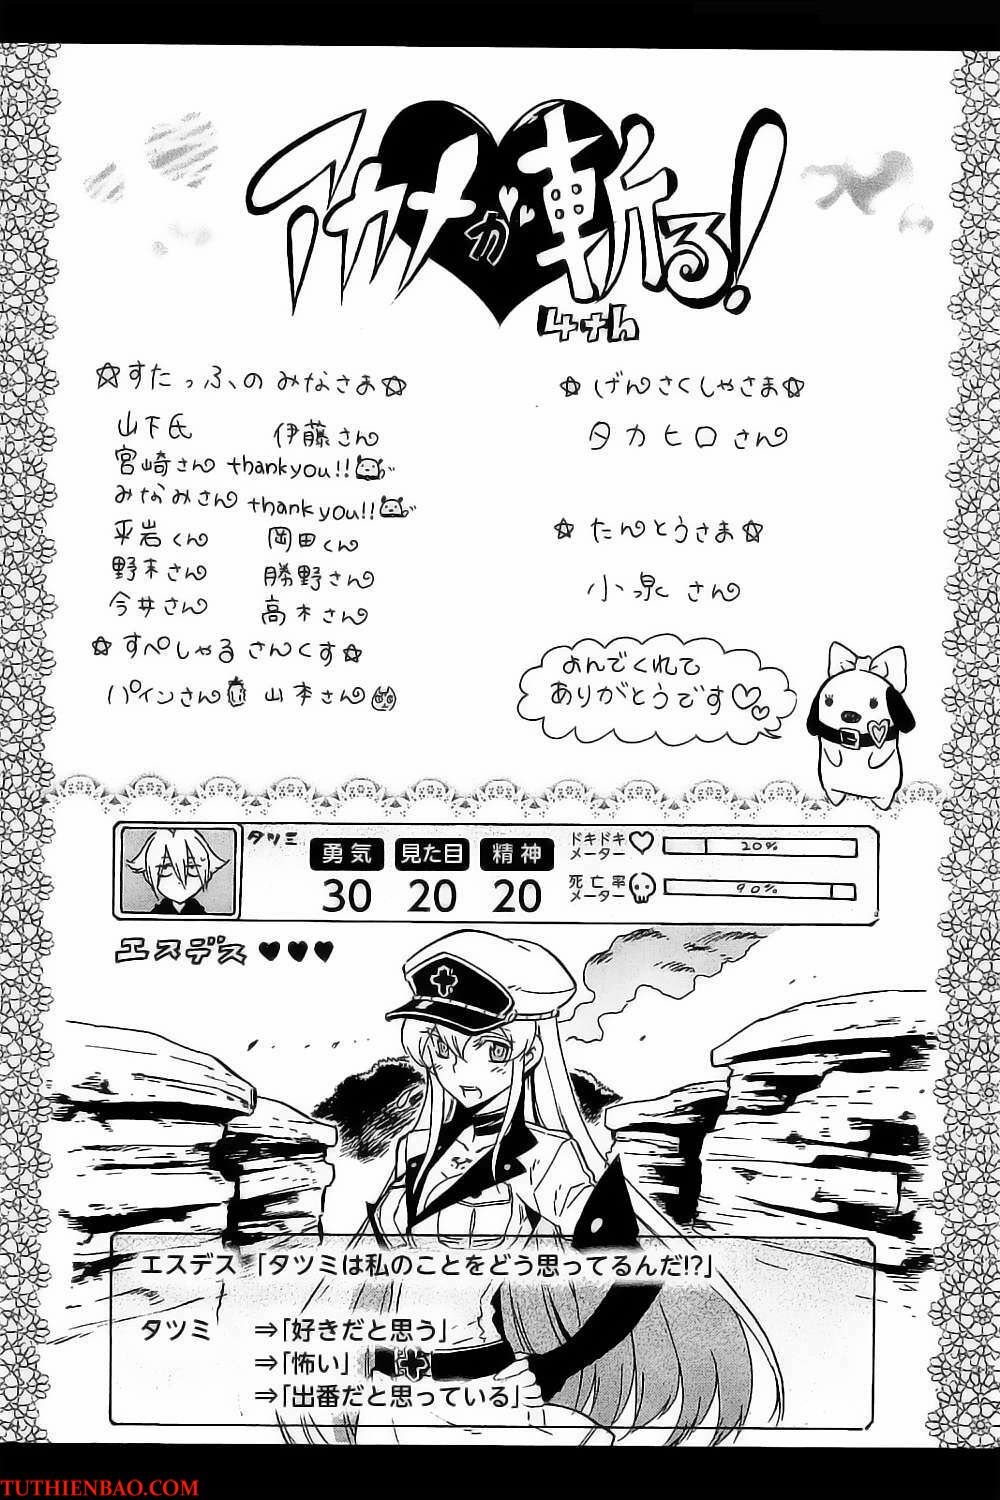 アカメが斬る!
4+ん
☆すたっふのみなさま☆
山下氏 伊藤さん
宮崎さん thankyou!!
みなみさん thankyou!!
平岩くん 岡田くん
野本さん 勝野さん
今井さん 高木さん
☆すぺしゃるさんくす☆
パインさん 山本さん
☆げんさくしゃさま☆
タカヒロさん
☆たんとうさま☆
小泉さん
よんでくれて
ありがとうです♡♡
タツミ
勇気 見た目 精神
30 20 20
ドキドキメーター 20%
死亡率メーター 90%
エスデス♥♥♥
エスデス「タツミは私のことをどう思ってるんだ!?」
タツミ ⇒「好きだと思う」
⇒「怖い」
⇒「出番だと思っている」
TUTHIENBAO.COM